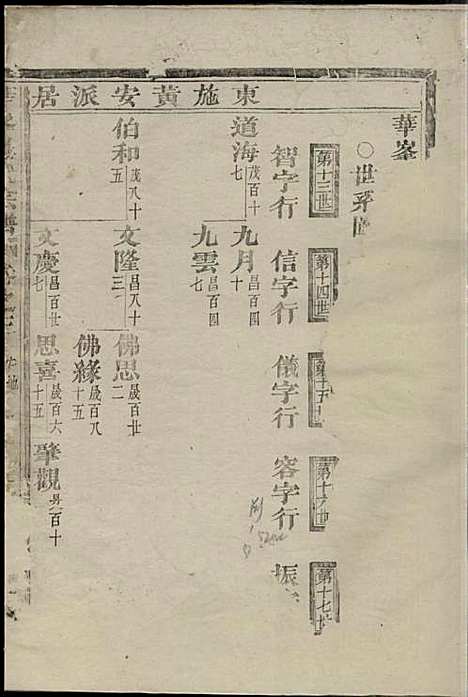 華峯
○世系圖
第十三世
第十四世
第十五
第十六世
第十七世
智字行
信字行
儀字行
容字行
振
居派安黃施東
道海 茂百十七
九月 昌百四十
九雲 昌百四七
伯和 茂八十五
文隆 昌八十三
佛思 晟百廿二
佛緣 晟百八十五
文慶 昌百廿七
思喜 晟百六十五
肇觀 昺百十